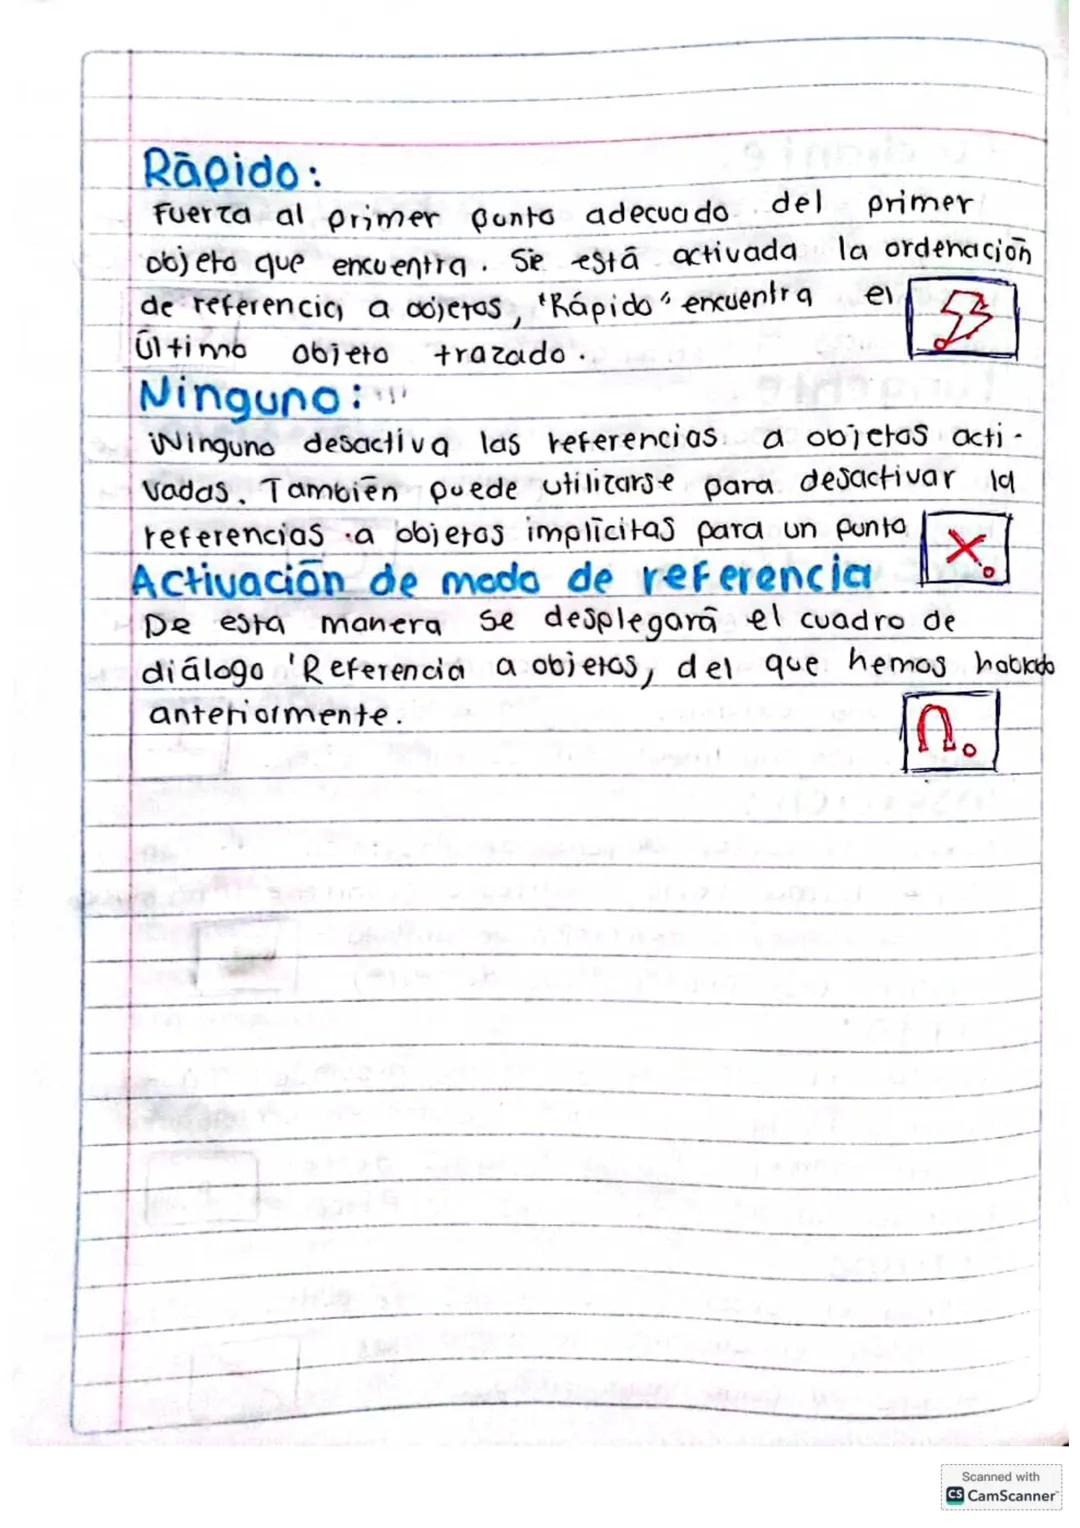 Rápido:
Fuerza al primer punto adecuado del primer
objeto que encuentra. Sie está activada la ordenación
de referencia a objetos, "Rápido" encuentra el
Último objeto trazado.
Ninguno:
Ninguno desactiva las referencias a objetos acti-
vadas. También puede utilizarse para desactivar la
referencias a objetos implícitas para un punto
Activación de modo de referencia
De esta manera se desplegará el cuadro de
diálogo 'Referencia a objetos, del que hemos hablado
anteriormente.
Scanned with
CS CamScanner